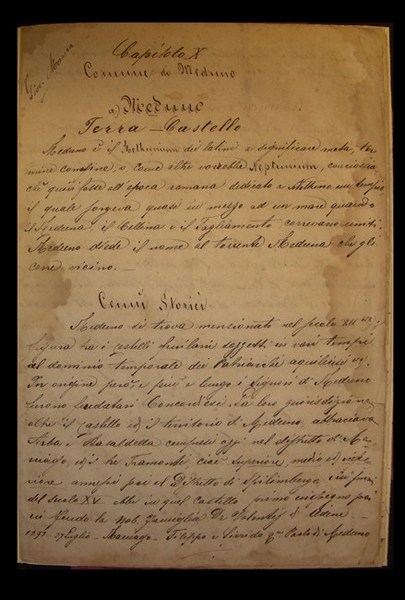 Capitolo X
Comune di Meduno
a) Meduno
Terra - Castello
Meduno è il dei latini e significare meta, ter
mine confine, o come altri vorrebbe Neptunium, conciosia
chè quivi fosse all'epoca romana dedicato a Nettuno un tempio
il quale sorgeva quasi in mezzo ad un mare quando
il Meduna, il Cellina e il Tagliamento correvano uniti.
Meduno diede il nome al torrente Meduna che gli
corre vicino. —
Cenni Storici
Meduno si trova menzionato nel secolo XII
figura tra i castelli soggetti in vari tempi
al dominio temporale dei Patriarchi aquileiesi
In origine però e più a lungo i Signori di Meduno
furono Concordiesi. La loro giurisdizione
oltre il castello ed il territorio di Meduno, abbracciava
Arba e compresi oggi nel distretto di Ma
niago, ed i tre Tramonti cioè superiore, medio ed infe
riore annessi poi al Distretto di Spilimbergo
del secolo XV ebbe in quel Castello
in feudo la Nob. Famiglia De Valentis di Udine. —
1293. 27 Luglio - Maniago - Filippo e Paolo di Meduno